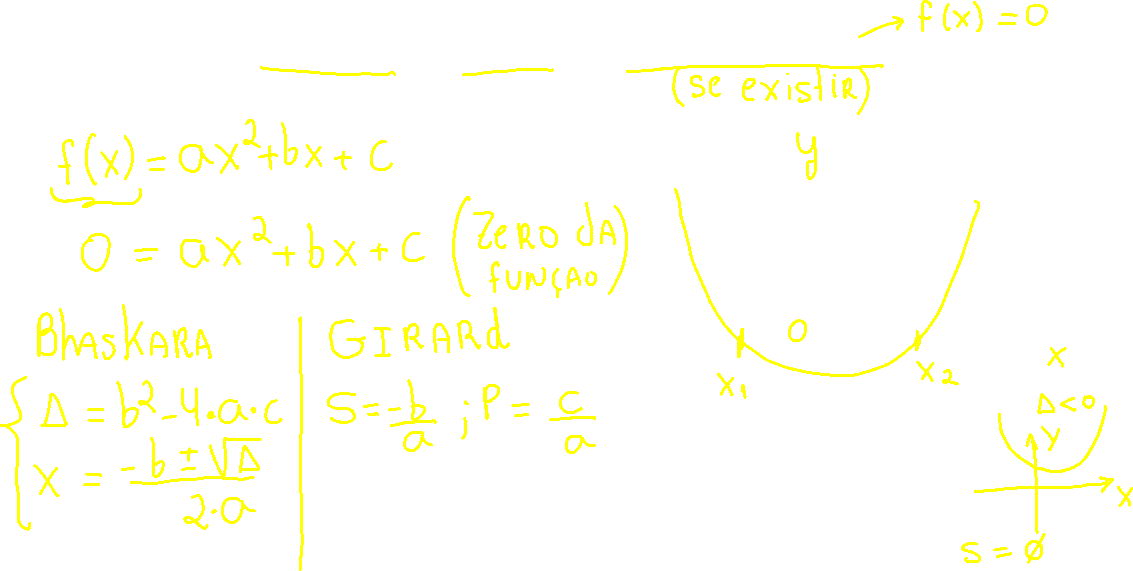 f(x) = 0
(se existir)
f(x) = ax²+bx + c
0 = ax²+bx+c (Zero da
função)
Bhaskara
Δ = b²-4·a·c
x = -b ± √Δ / 2·a
Girard
S = -b/a ; P = c/a
y
0
x₁
x₂
x
Δ<0
y
x
S = ∅